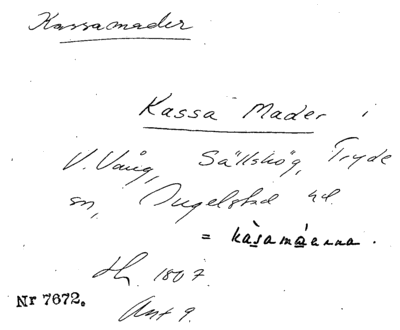 Kassamader
Kassa Mader i
V. Vång, Sällshög, Tryde
sn, Ingelstad hd.
= kàsamáerna.
Hh. 1807.
Nr 7672.
Ant 9.